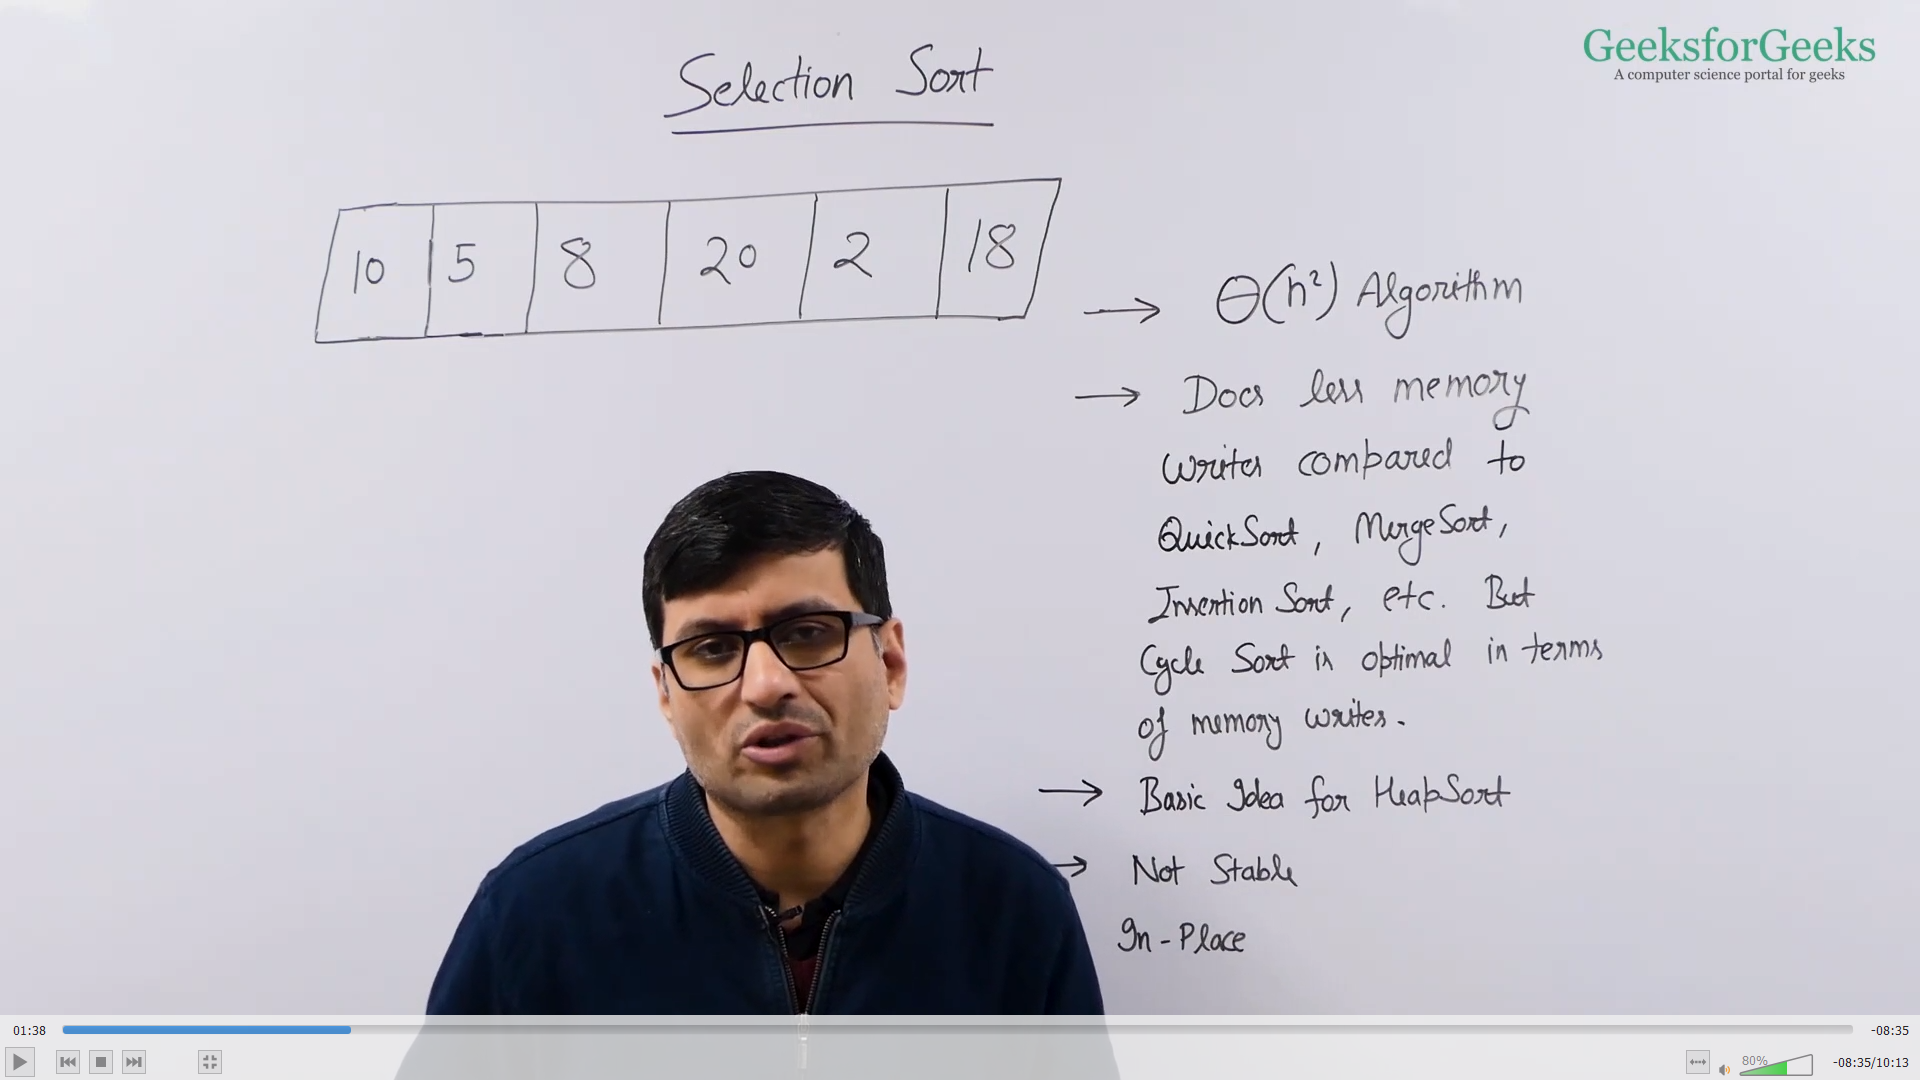 GeeksforGeeks
A computer science portal for geeks
Selection Sort
10 5 8 20 2 18
→ Θ(n²) Algorithm
→ Does less memory
writes compared to
QuickSort, MergeSort,
Insertion Sort, etc. But
Cycle Sort is optimal in terms
of memory writes.
→ Basic Idea for HeapSort
→ Not Stable
In-Place
01:38 -08:35
80% -08:35/10:13